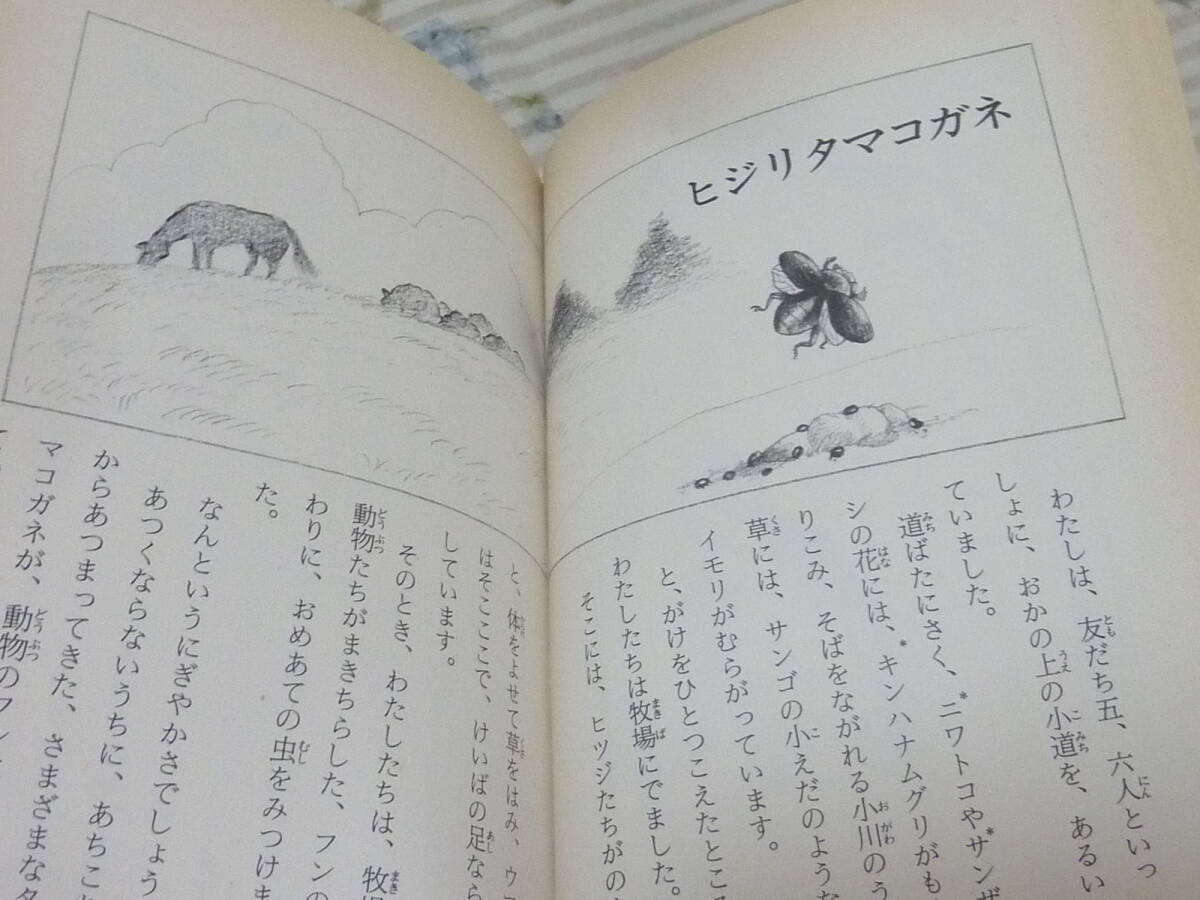 ヒジリタマコガネ
わたしは、友だち五、六人といっ
しょに、おかの上の小道を、あるい
ていました。
道ばたにさく、*ニワトコや*サンザ
シの花には、*キンハナムグリがも
りこみ、そばをながれる小川のう
草には、サンゴの小えだのような
イモリがむらがっています。
と、がけをひとつこえたところ
わたしたちは牧場にでました。
そこには、ヒツジたちがの
と、体をよせて草をはみ、ウ
はそここで、けいばの足なら
しています。
そのとき、わたしたちは、牧
動物たちがまきちらした、フンの
わりに、おめあての虫をみつけま
た。
なんというにぎやかさでしょう
あつくならないうちに、あちこ
からあつまってきた、さまざまな
マコガネが、動物のフン